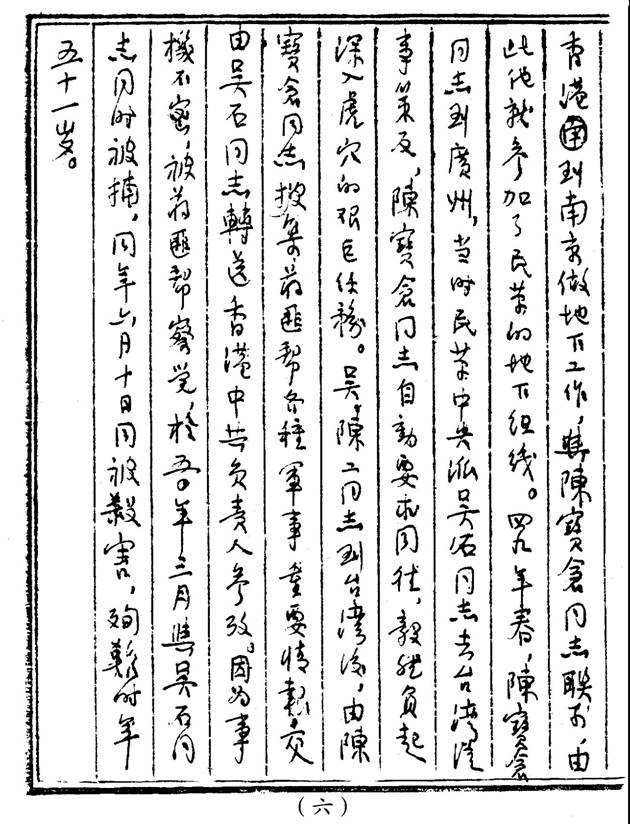 香港圑到南京做地下工作，與陳寶倉同志联系，由
此他就参加了民革的地下组线。四九年春，陳寶倉
同志到廣州，当时民革中央派吴石同志去台湾從
事策反，陳寶倉同志自動要求同往，毅然負起
深入虎穴的艰巨任務。吴、陳二同志到台湾後，由陳
寶倉同志搜集蒋匪帮各種軍事重要情報，交
由吴石同志轉送香港中共负责人参攷。因为事
機不密，被蒋匪幫察觉，於五〇年三月與吴石同
志同时被捕，同年六月十日同被殺害，殉難时年
五十一岁。
（六）